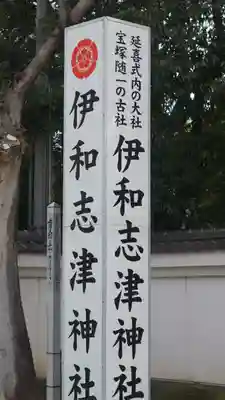 延喜式内の大社
宝塚随一の古社
伊和志津神社
伊和志津神社